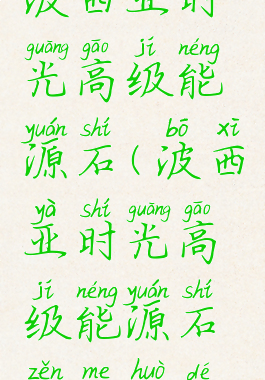 波西亚时
guāng gāo jí néng
光高级能
yuán shí bō xī
源石(波西
yà shí guāng gāo
亚时光高
jí néng yuán shí
级能源石
zěn me huò dé